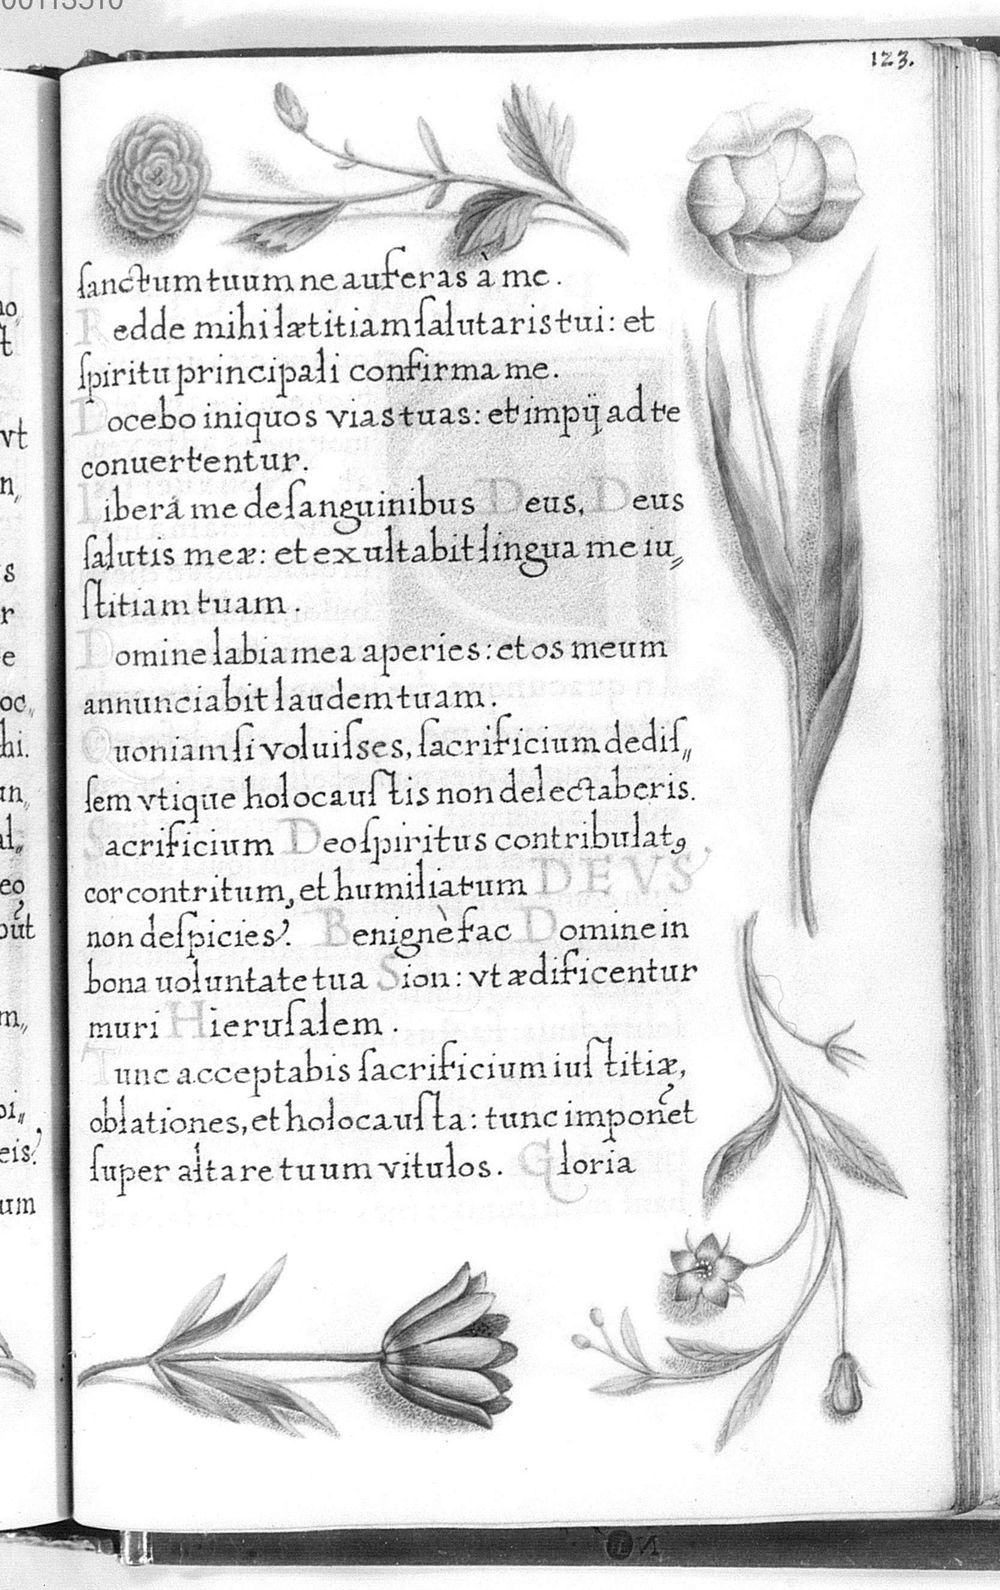 00113510
123.
ſanctum tuum ne auferas à me.
Redde mihi lætitiam ſalutaris tui: et
ſpiritu principali confirma me.
Docebo iniquos vias tuas: et impij ad te
conuertentur.
Libera me de ſanguinibus Deus, Deus
ſalutis meæ: et exultabit lingua me iu„
ſtitiam tuam.
Domine labia mea aperies: et os meum
annunciabit laudem tuam.
Quoniam ſi voluiſses, ſacrificium dediſ„
ſem vtique holocauſtis non delectaberis.
Sacrificium Deo ſpiritus contribulatꝰ
cor contritum, et humiliatum DEVS
non deſpicies. Benignè fac Domine in
bona uoluntate tua Sion: vt ædificentur
muri Hieruſalem.
Tunc acceptabis ſacrificium iuſtitiæ,
oblationes, et holocauſta: tunc imponet
ſuper altare tuum vitulos. Gloria